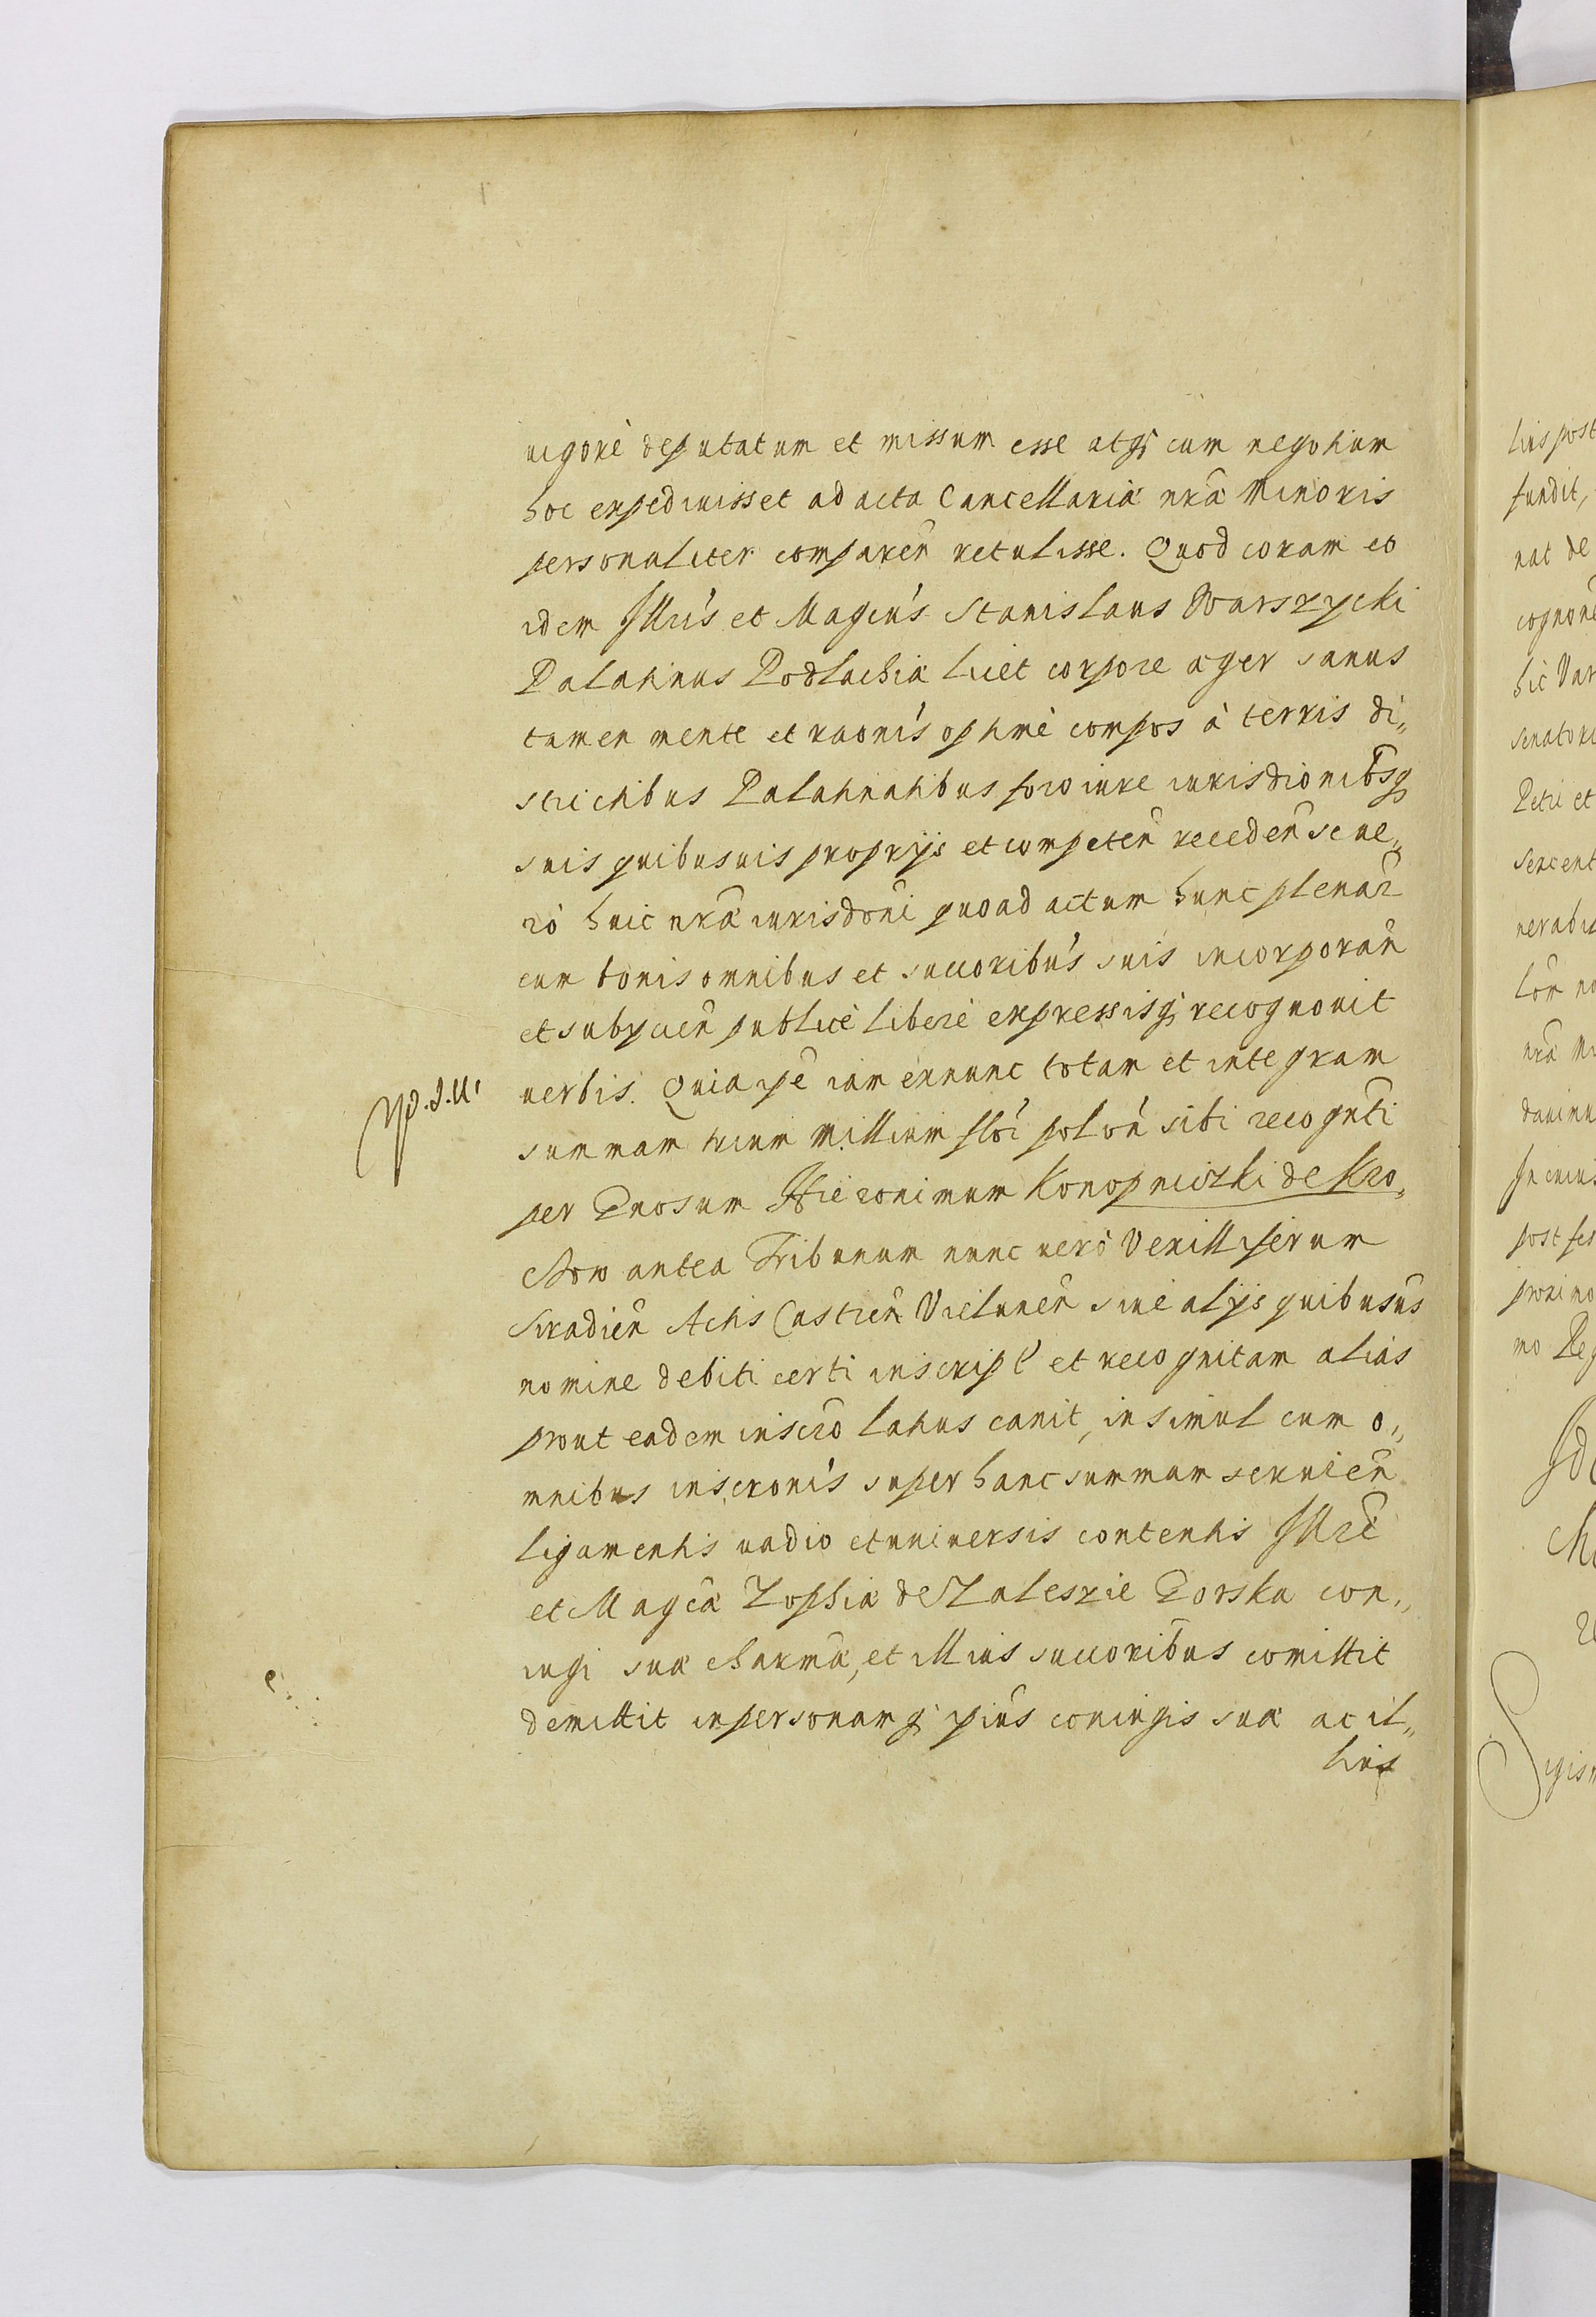 uigore deputatum et missum esse atq; cum negotium
hoc expediuisset ad acta Cancellariæ nrã Minoris
personaliter comparen̄ retulisse. Quod coram eo
idem Illrīs et Magcūs Stanislaus Warszycki
Palatinus Podlachiæ licet corpore æger sanus
tamen mente et raonis optimè compos à terris di„
strictibus Palatinatibus foro iure iurisdionibūsq;
suis quibusuis proprijs et competen̄ receden̄ se ue„
rò huic nrã iurisdōni quoad actum hunc plenar̄
cum bonis omnibus et succoribūs suis incorporan̄
et subyicien̄ publicè liberè expressisq; recognouit
uerbis. Quia ipe iam exnunc totam et integram
summam trium Millium flor̄ polon̄ sibi recognti
per Gnosum Hieronimum Konopniczki de Kro„
chow antea Tribunum nunc uerò Vexilliferum
Siradien̄ Actis Castren̄ Vielunen̄ siue alijs quibusuis
nomine debiti certi inscript et recognitam aliàs
prout eadem inscrō latius canit, in simul cum o„
mnibus inscronīs super hanc summam seruien̄
ligamentis uadio et uniuersis contentis Illrī
et Magcæ Zophiæ de Zaleszie Gorska con„
iugi suæ charmæ, et illius succoribus comittit
demittit inpersonamq; ipius coniugis suæ ac il„
lius